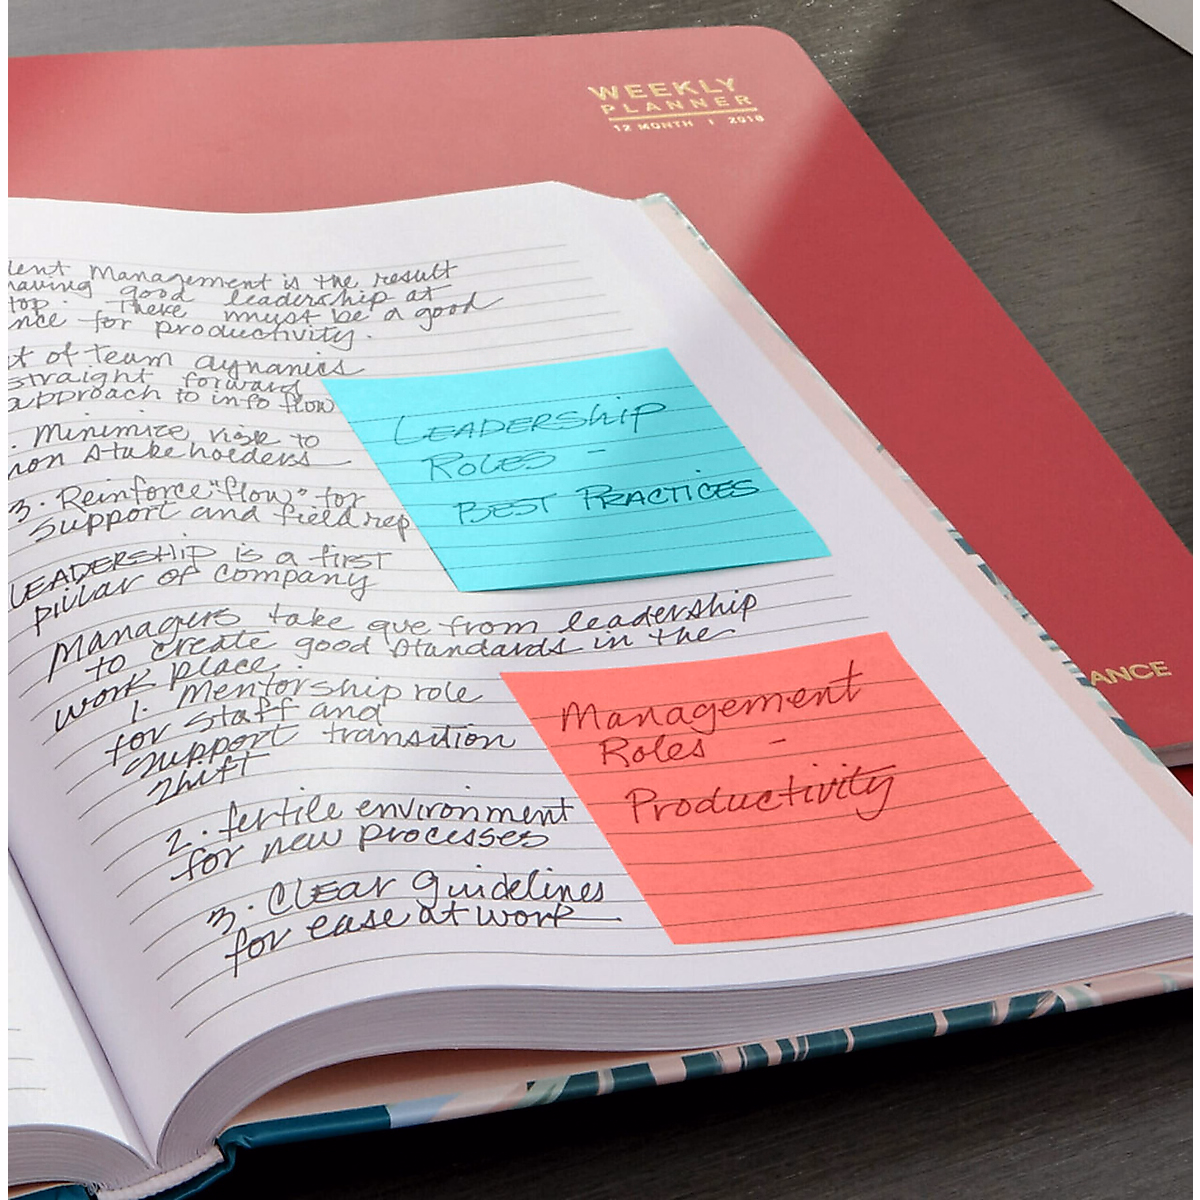 WEEKLY
PLANNER
12 MONTH | 2018
Management is the result
good leadership at
top. There must be a good
for productivity.
of team dynamics
straight forward
approach to info flow
Minimize risk to
non stakeholders
3. Reinforce "flow" for
support and field rep
LEADERSHIP is a first
pillar of company
Managers take que from leadership
to create good standards in the
work place.
1. Mentorship role
for staff and
support transition
shift
2. fertile environment
for new processes
3. Clear guidelines
for ease at work
LEADERSHIP
ROLES -
BEST PRACTICES
Management
Roles -
Productivity
ANCE